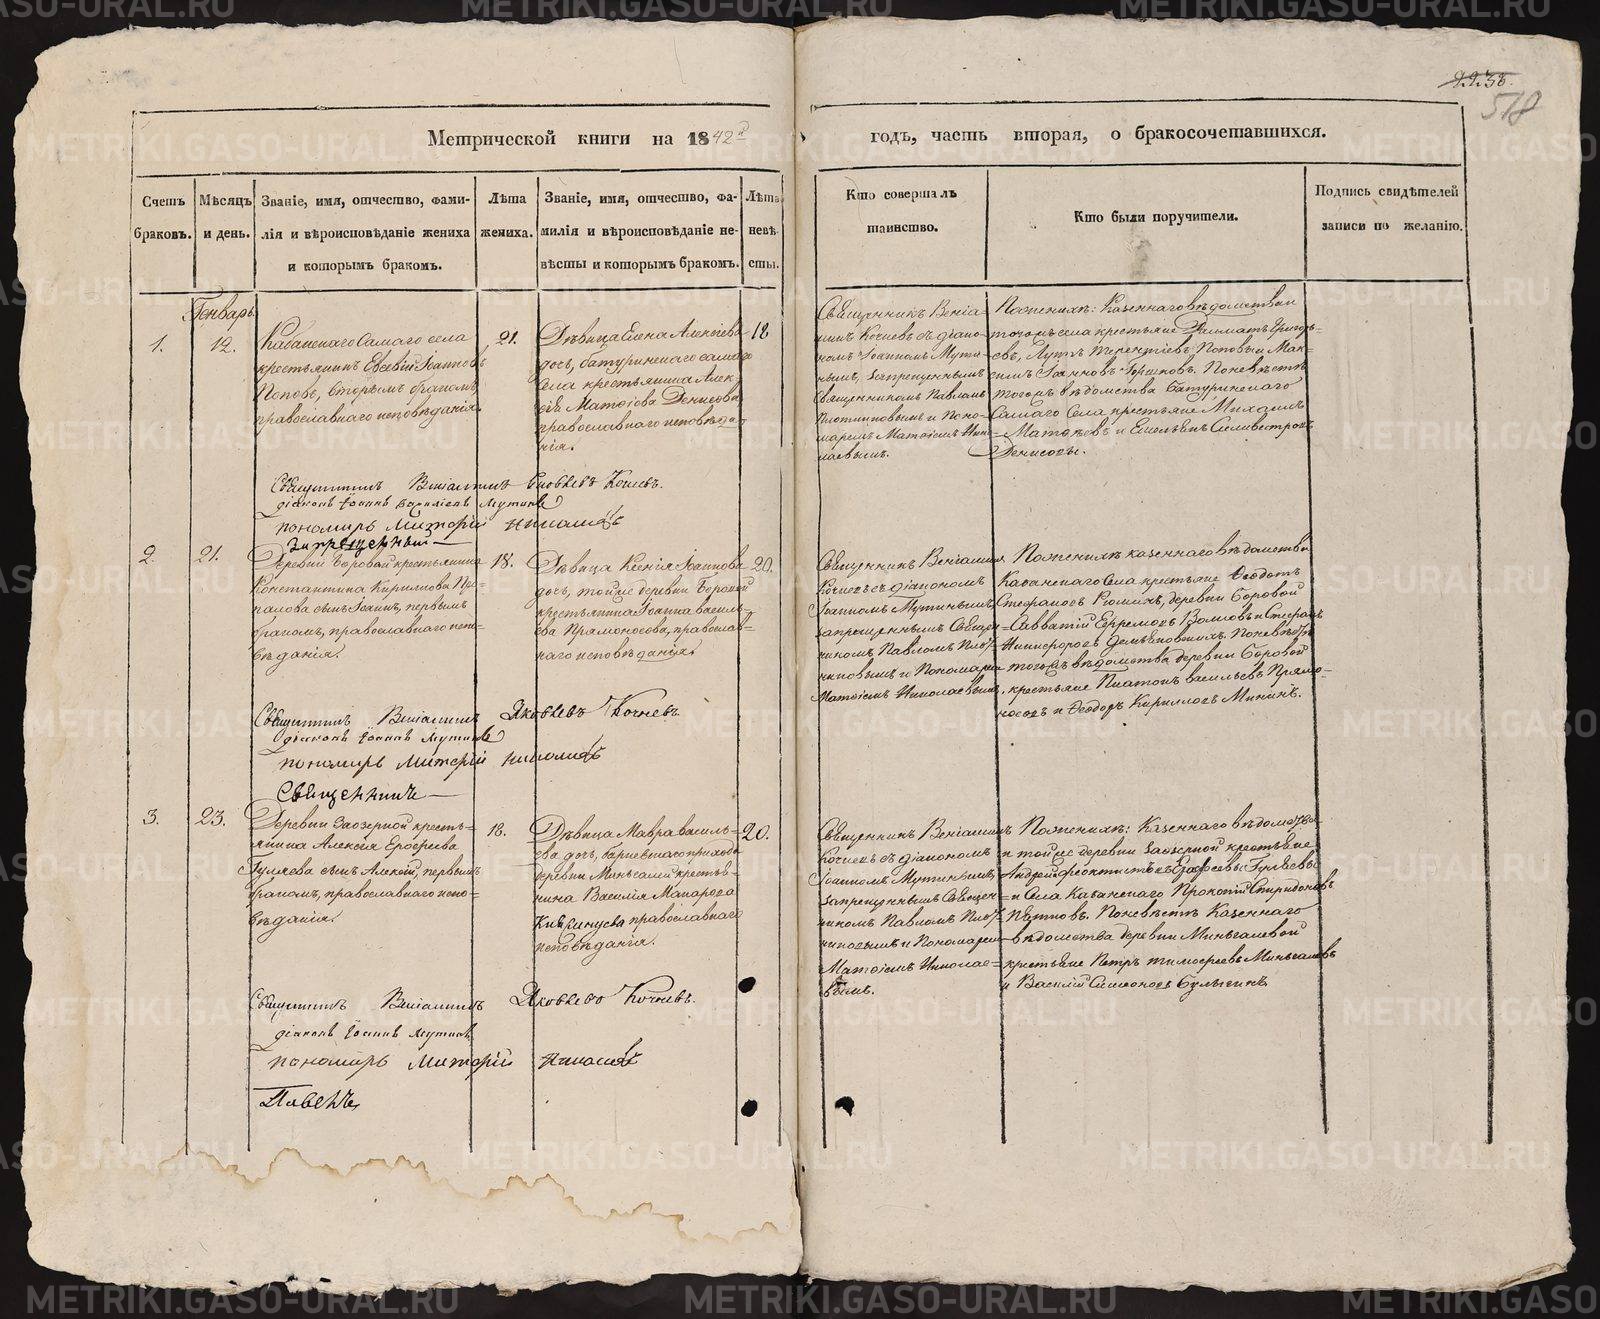 2238.
518
Метрической книги на 1842й
годъ, часть вторая, о бракосочетавшихся.
Счетъ браковъ.
Мѣсяцъ и день.
Званіе, имя, отчество, фами-
лія и вѣроисповѣданіе жениха
и которымъ бракомъ.
Лѣта жениха.
Званіе, имя, отчество, фа-
милія и вѣроисповѣданіе не-
вѣсты и которымъ бракомъ.
Лѣта невѣ-
сты.
Кто совершалъ
таинство.
Кто были поручители.
Подпись свидѣтелей
записи по желанію.
Генварь
1.
12.
Кабанскаго Самаго села
крестьянинъ Евсевій Іоанновъ
Поповъ, вторымъ бракомъ,
православнаго исповѣданія.
21.
Дѣвица Елена Алексіева
дочь, батуринскаго самаго
села крестьянина Алек
сія Матѳіева Денисова
православнаго исповѣда-
нія.
18
Священникъ Веніа-
минъ Кочневъ съ діако-
номъ Іоанномъ Мути-
нымъ, запрещеннымъ
Священникомъ Павломъ
Плотниковымъ и Поно-
маремъ Матѳіемъ Нико-
лаевымъ.
По женихѣ: Казеннаго вѣдомства
тогожъ села крестьяне Григорь-
евъ, Терентіевъ Поповы и Мак-
симъ Іоанновъ Горшковъ. По невѣстѣ
тогожъ вѣдомства Батуринскаго
Самаго Села крестьяне Михаилъ
Матѳѣевъ и Емельянъ Селивестровъ
Денисовы.
Священникъ Веніаминъ Яковлевъ Кочневъ.
діаконъ Іоаннъ Василіевъ Мутинъ
пономарь Матѳій Николаевъ
Запрещенный
2.
21.
Деревни Боровой крестьянина
Константина Кирилова
сынъ Іоаннъ, первымъ
бракомъ, православнаго испо-
вѣданія.
18.
Дѣвица Ксенія Іоаннова
дочь, тойже деревни Боровой
крестьянина Іоанна василь-
ева Прямоносова, православ-
наго исповѣданія.
20.
Священникъ Веніаминъ
Кочневъ съ діакономъ
Іоанномъ Мутинымъ,
запрещеннымъ Священ-
никомъ Павломъ Плот-
никовымъ и Пономаремъ
Матѳіемъ Николаевымъ.
По женихѣ казеннаго вѣдомства
Кабанскаго Села крестьяне Ѳеодотъ
Стефановъ деревни Боровой
Савватій Ефремовъ Волковъ и Стефанъ
Никифоровъ Демьяновыхъ. По невѣстѣ
тогожъ вѣдомства деревни Боровой
крестьяне Платонъ васильевъ Прямо-
носовъ и Ѳеодоръ Кириловъ Мининъ.
Священникъ Веніаминъ Яковлевъ Кочневъ
діаконъ Іоаннъ Мутинъ
пономарь Матѳій Николаевъ
Священникъ
3.
23.
Деревни Заозерной кресть-
янина Алексія Ерофеева
Гуляева сынъ Алексій, первымъ
бракомъ, православнаго испо-
вѣданія.
18.
Дѣвица Мавра василь-
ева дочь, барневскаго прихода
деревни крестья-
нина Василія Макарова
православнаго
исповѣданія.
20.
Священникъ Веніаминъ
Кочневъ съ діакономъ
Іоанномъ Мутинымъ,
запрещеннымъ Священ-
никомъ Павломъ Плот-
никовымъ и Пономаремъ
Матѳіемъ Николае-
вымъ.
По женихѣ: Казеннаго вѣдомства
и тойже деревни Заозерной крестьяне
Андрей Гуляевы
и Села Кабанскаго Прокопій Спиридоновъ
Пятковъ. По невѣстѣ Казеннаго
вѣдомства деревни
крестьяне Петръ тимофеевъ
и Василій Симоновъ Булыгинъ
Священникъ Веніаминъ Яковлево Кочневъ.
діаконъ Іоаннъ Мутинъ
пономарь Матѳій Николаевъ
Павелъ
METRIKI.GASO-URAL.RU